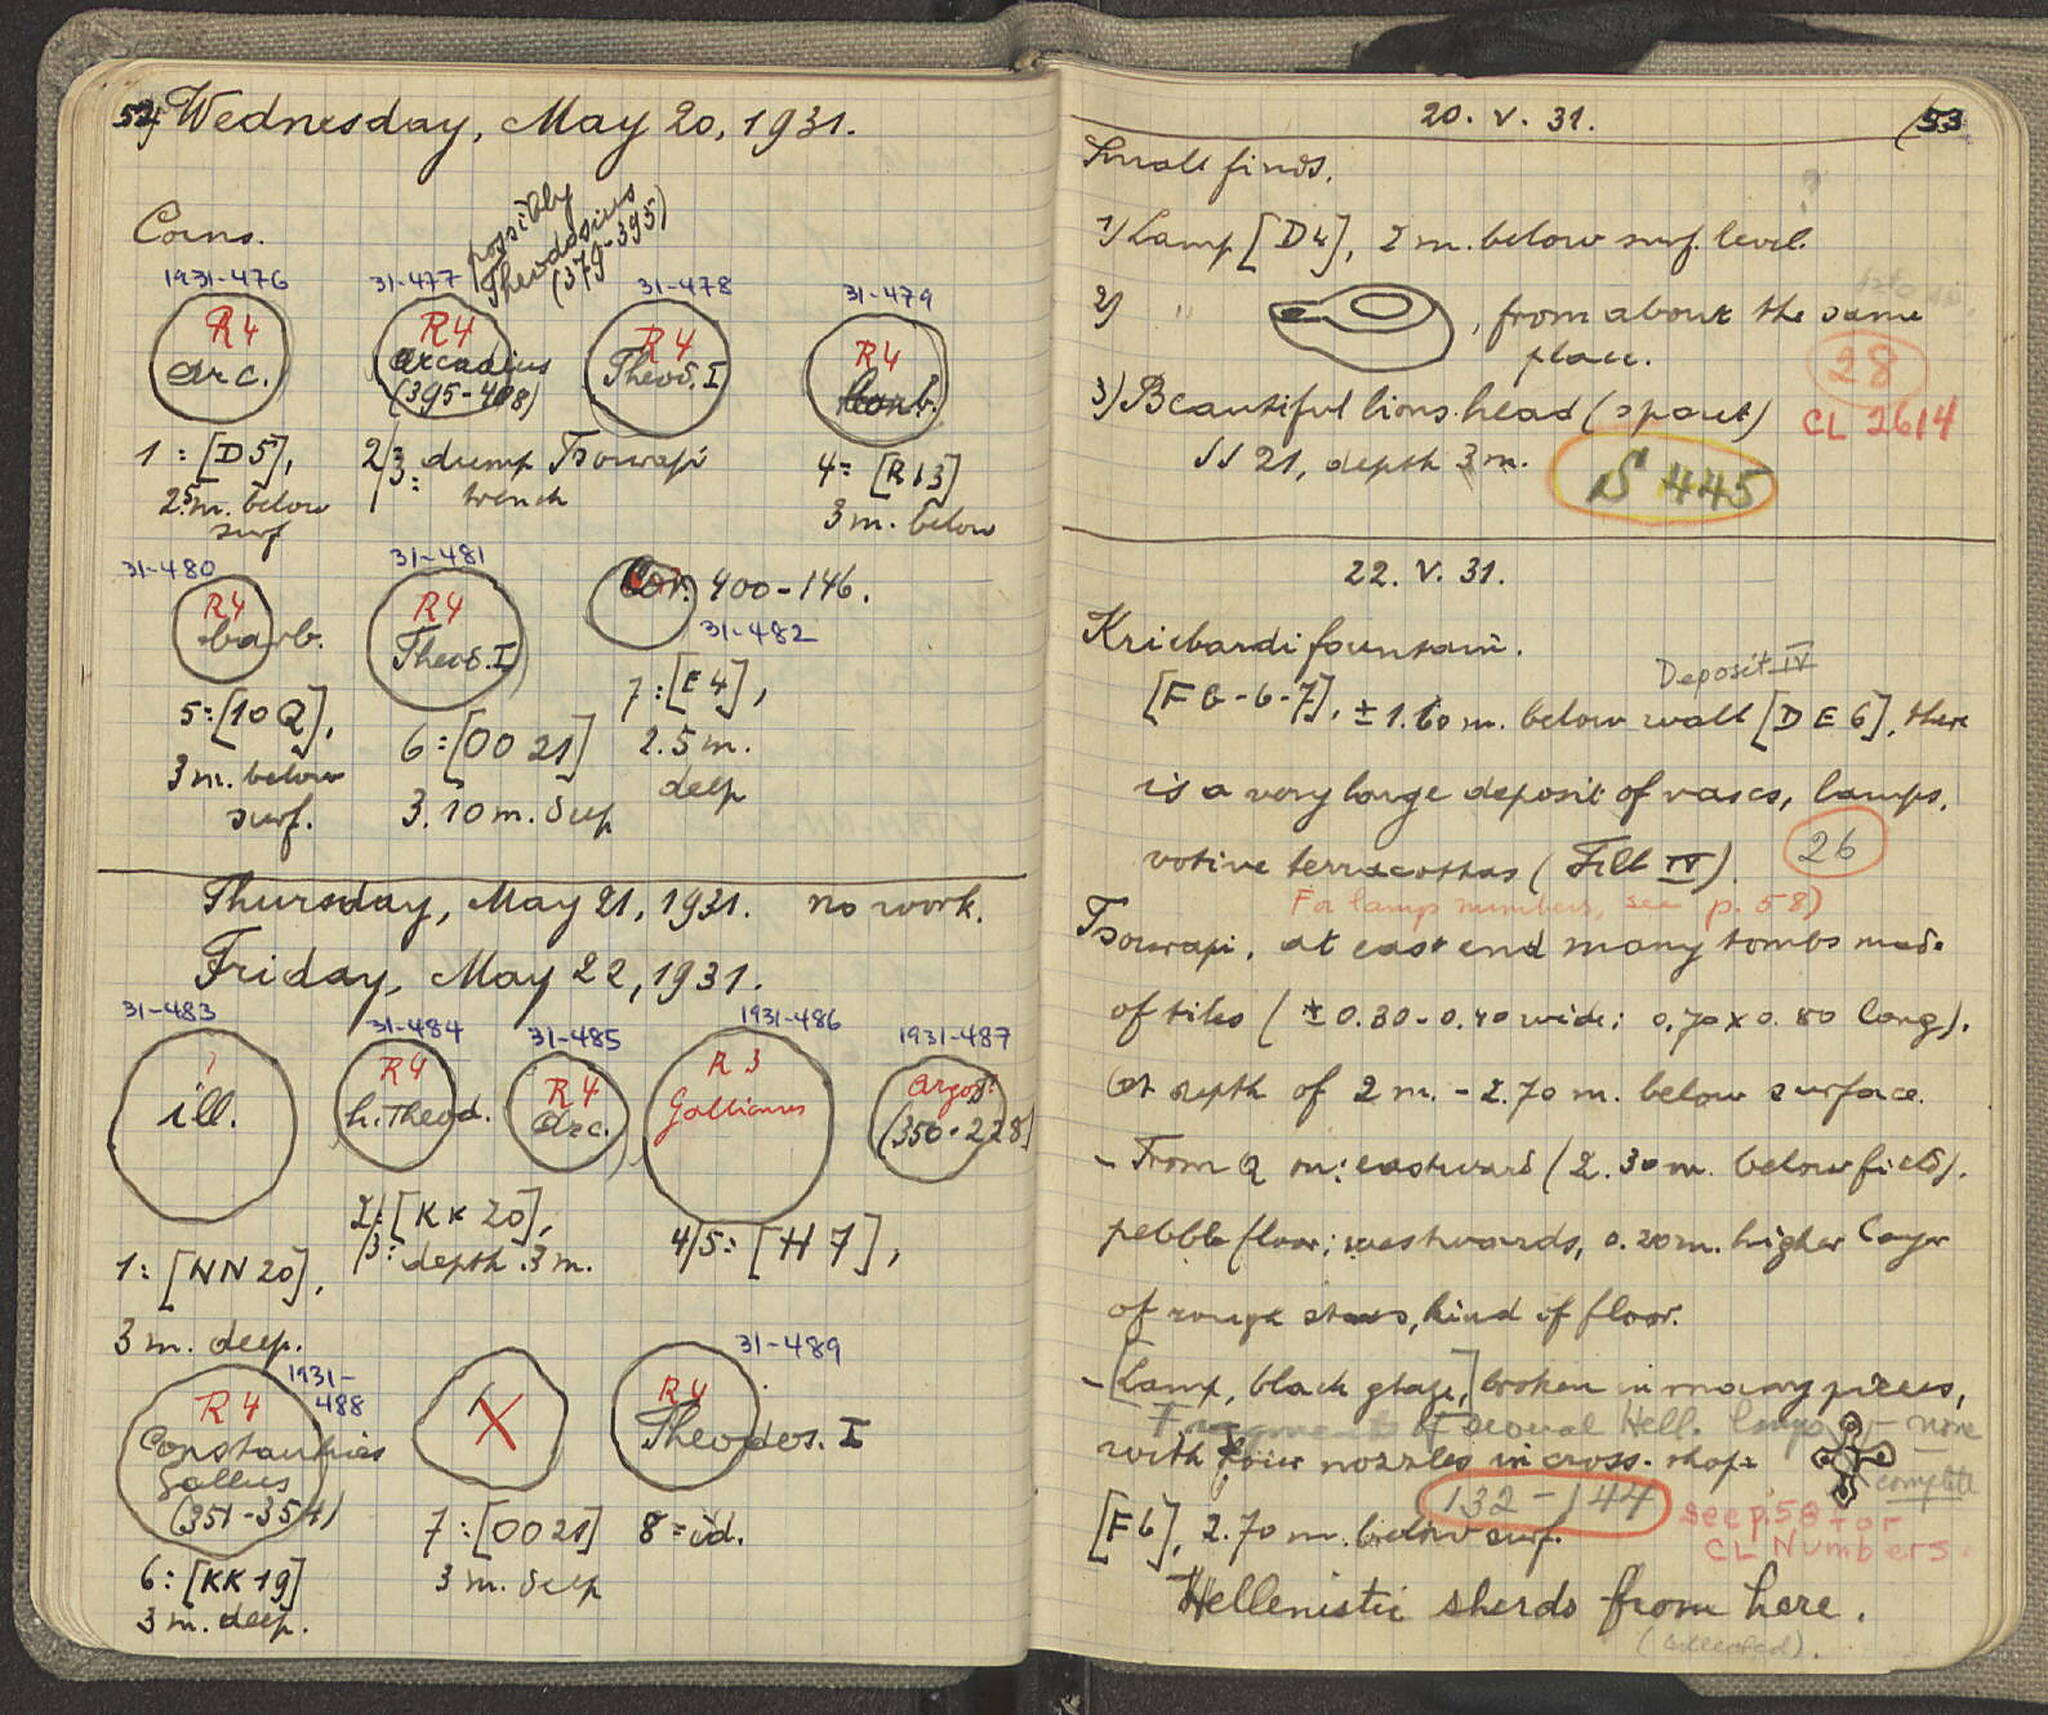 52) Wednesday, May 20, 1931.
Coins.
possibly
Theodosius
(379-395)
1931-476
31-477
31-478
31-479
R4
Arc.
R4
Arcadius
(395-408)
R4
Theod. I
R4
barb.
1: [D5],
2.5 m. below
surf
2/3: dump Tsourapi
trench
4= [R13]
3 m. below
31-480
31-481
R4
barb.
R4
Theod. I
Cor. 400-146.
31-482
5:[10 Q],
3 m. below
surf.
6:[OO 21]
3.10 m. deep
7:[E4],
2.5 m.
deep
Thursday, May 21, 1931. no work.
Friday, May 22, 1931.
31-483
31-484
31-485
1931-486
1931-487
?
ill.
R4
h. Theod.
R4
Arc.
R 3
Gallienus
Argos!
(350-228)
1: [NN 20],
3 m. deep.
2/3: [KK 20],
depth 3 m.
4/5: [H 7],
1931-
488
R4
Constantius
Gallus
(351-354)
X
31-489
R4
Theodos. I
6: [KK 19]
3 m. deep.
7:[OO 21]
3 m. deep
8= id.
20. V. 31.
(53
Small finds.
1) Lamp [D4], 2 m. below surf. level.
2) " , from about the same
place.
28
CL 2614
3) Beautiful lions head (spout)
SS 21, depth 3 m.
S 445
22. V. 31.
Kriebardi fountain.
Deposit IV
[F 6-6-7], ± 1.60 m. below wall [D E 6], there
is a very large deposit of vases, lamps,
votive terracottas (Fill IV).
26
For lamp numbers, see p. 58)
Tsourapi, at east end many tombs made
of tiles (± 0.30-0.40 wide; 0.70 x 0.80 long).
At depth of 2 m. - 2.70 m. below surface.
- From Q on: eastward (2.30 m. below field).
pebble floor; westwards, 0.20 m. higher layer
of rough stones, kind of floor.
- [Lamp, black glaze,] broken in many pieces,
Fragments of several Hell. lamps - none
complete
with four nozzles in cross-shape
132-144
see p. 58 for
CL Numbers.
[F6], 2.70 m. below surf.
Hellenistic sherds from here.